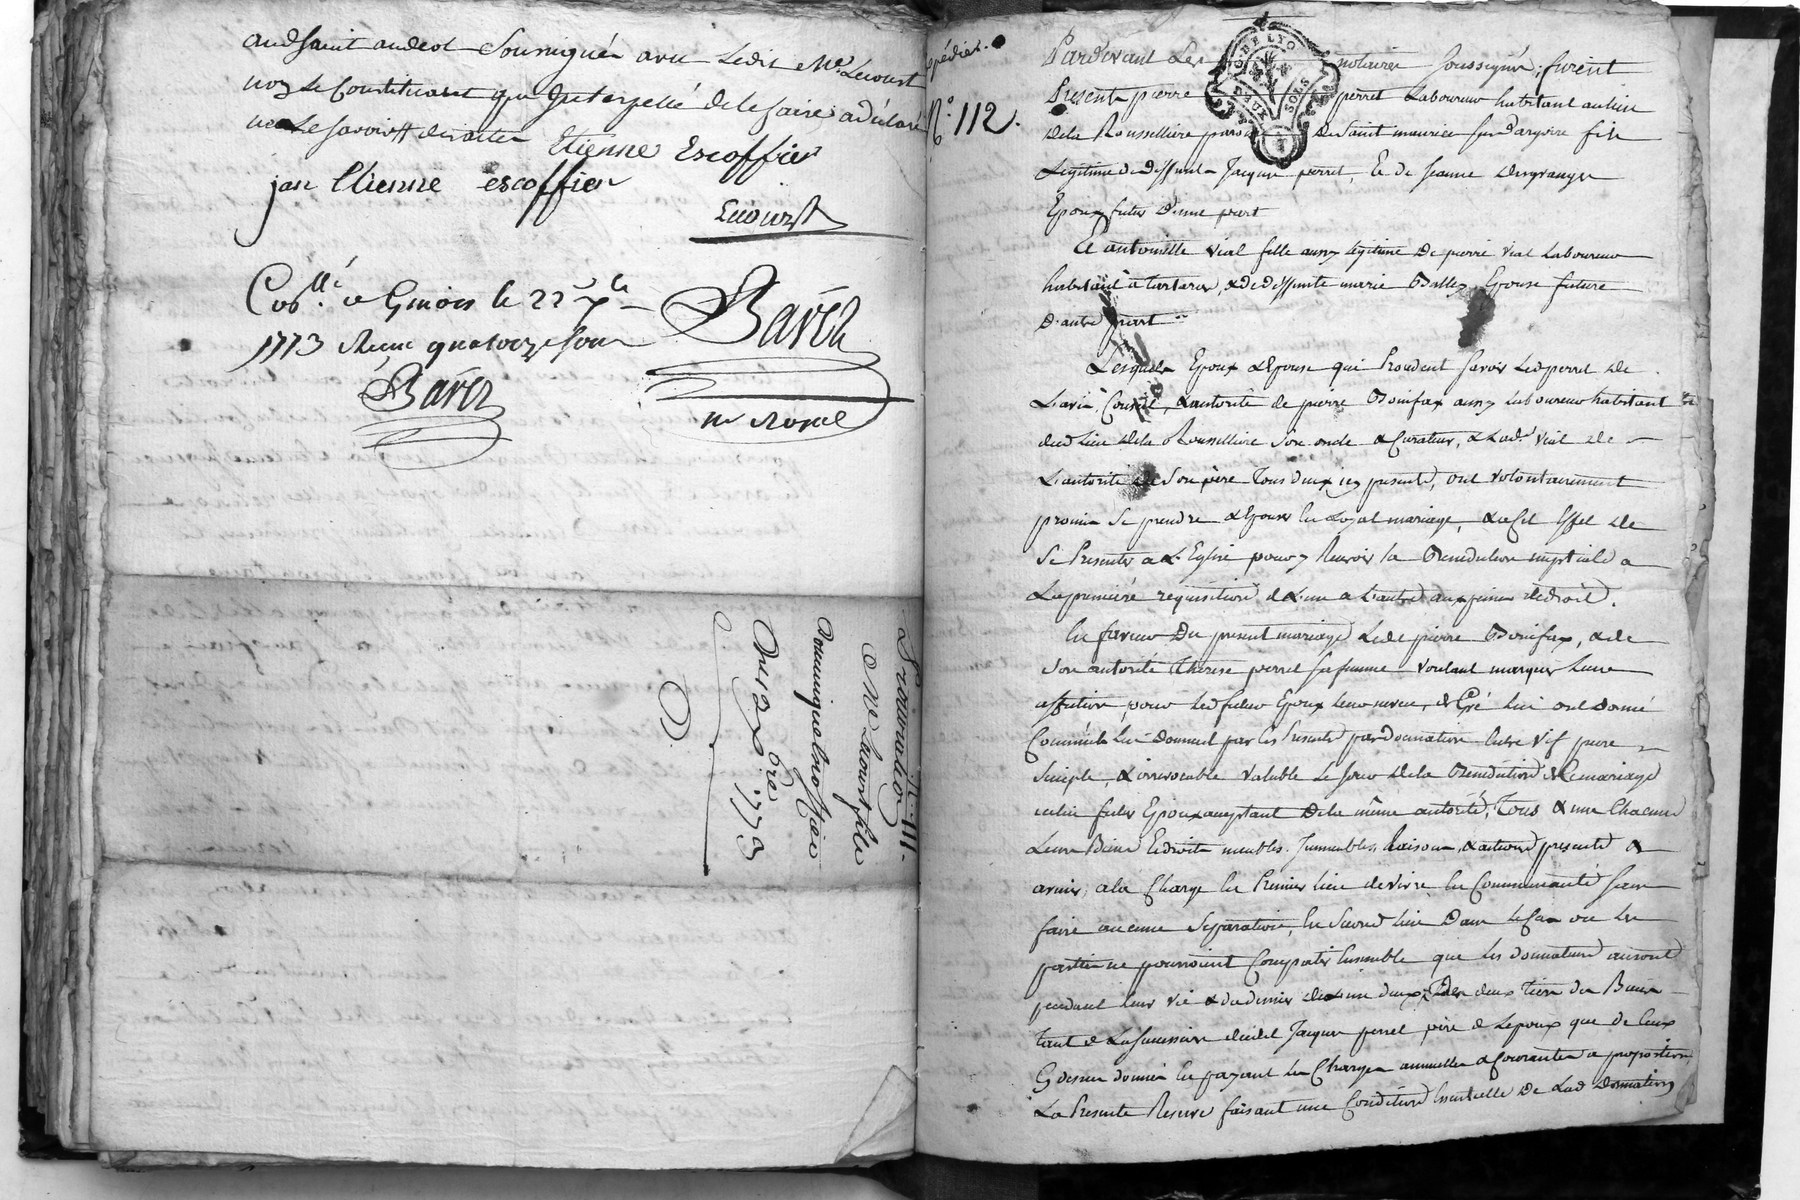 audsaint andeol soussignés avec ledit Me Lecourt
non le constituant qui interpellé de le faire a déclaré
ne le savoir
Etienne Escoffier
jan Etienne escoffier
Lecourt
Collé a Gniors le 22 xbre
1773 Reçu quatorze sous
Barez
Barez
nre Royal
n° 111.
Procuration
Me Lacourt fils
Dominique
Du 13 Xbre 1773
expédié.
N° 112.
G. DE LYO
DEUX SOLS
Pardevant Les notaires soussignés; furent
Présents pierre perret Laboureur habitant au lieu
dela Roussilliere paroisse De saint maurice sur dargoire fils
Légitime de deffunt Jacques perret, Et de Jeanne desgranges
Epoux futur d'une part
Et antoinette vial fille aussy légitime De pierre vial Laboureur
habitant a tartaras, & de deffunte marie Epouse future
d'autre part
Lesquels Epoux & Epouse qui procedent savoir led perret de
L'avis, Conseil, & autorité de pierre Bonifax aussy laboureur habitant
dud lieu dela Roussilliere son oncle & Curateur, & Lade vial de
L'autorité de son père Tous deux icy présents, ont volontairement
promis se prendre & Epouser en Loyal mariage, & a cet Effet de
se Presenter a L'Eglise pour y Recevoir la Benediction nuptiale a
La première requisition de L'un a L'autre aux peines de droit.
En faveur Du present mariage ledt pierre Bonifax, & de
son autorité Therese perret sa femme voulant marquer leur
affection pour led futur Epoux leur neveu, de Gré lui ont donné
Comme ils lui donnent par ces Presentes par donnation Entre Vif pure
simple, & irrevocable valable le jour dela Benediction de ce mariage
audit futur Epoux acceptant De la même autorité, Tous & uns Chacuns
Leurs Biens & droits meubles Immeubles Raisons & actions presents &
avenir, a la Charge En Premier lieu de vivre En Communauté sans
faire aucune Separation, En second lieu Dans le cas ou les
parties ne pourroient Compatir Ensemble que les donnateurs auront
pendant leur vie & du dernier de L'un deux, Des deux tiers des Biens
tant de La succession dudit Jacques perret père de Lepoux que de Ceux
Cy dessus donnés En payant les Charges annuelles & Courantes a proportion
La Presente Reserve faisant une Condition Essentielle De Lad Donnation